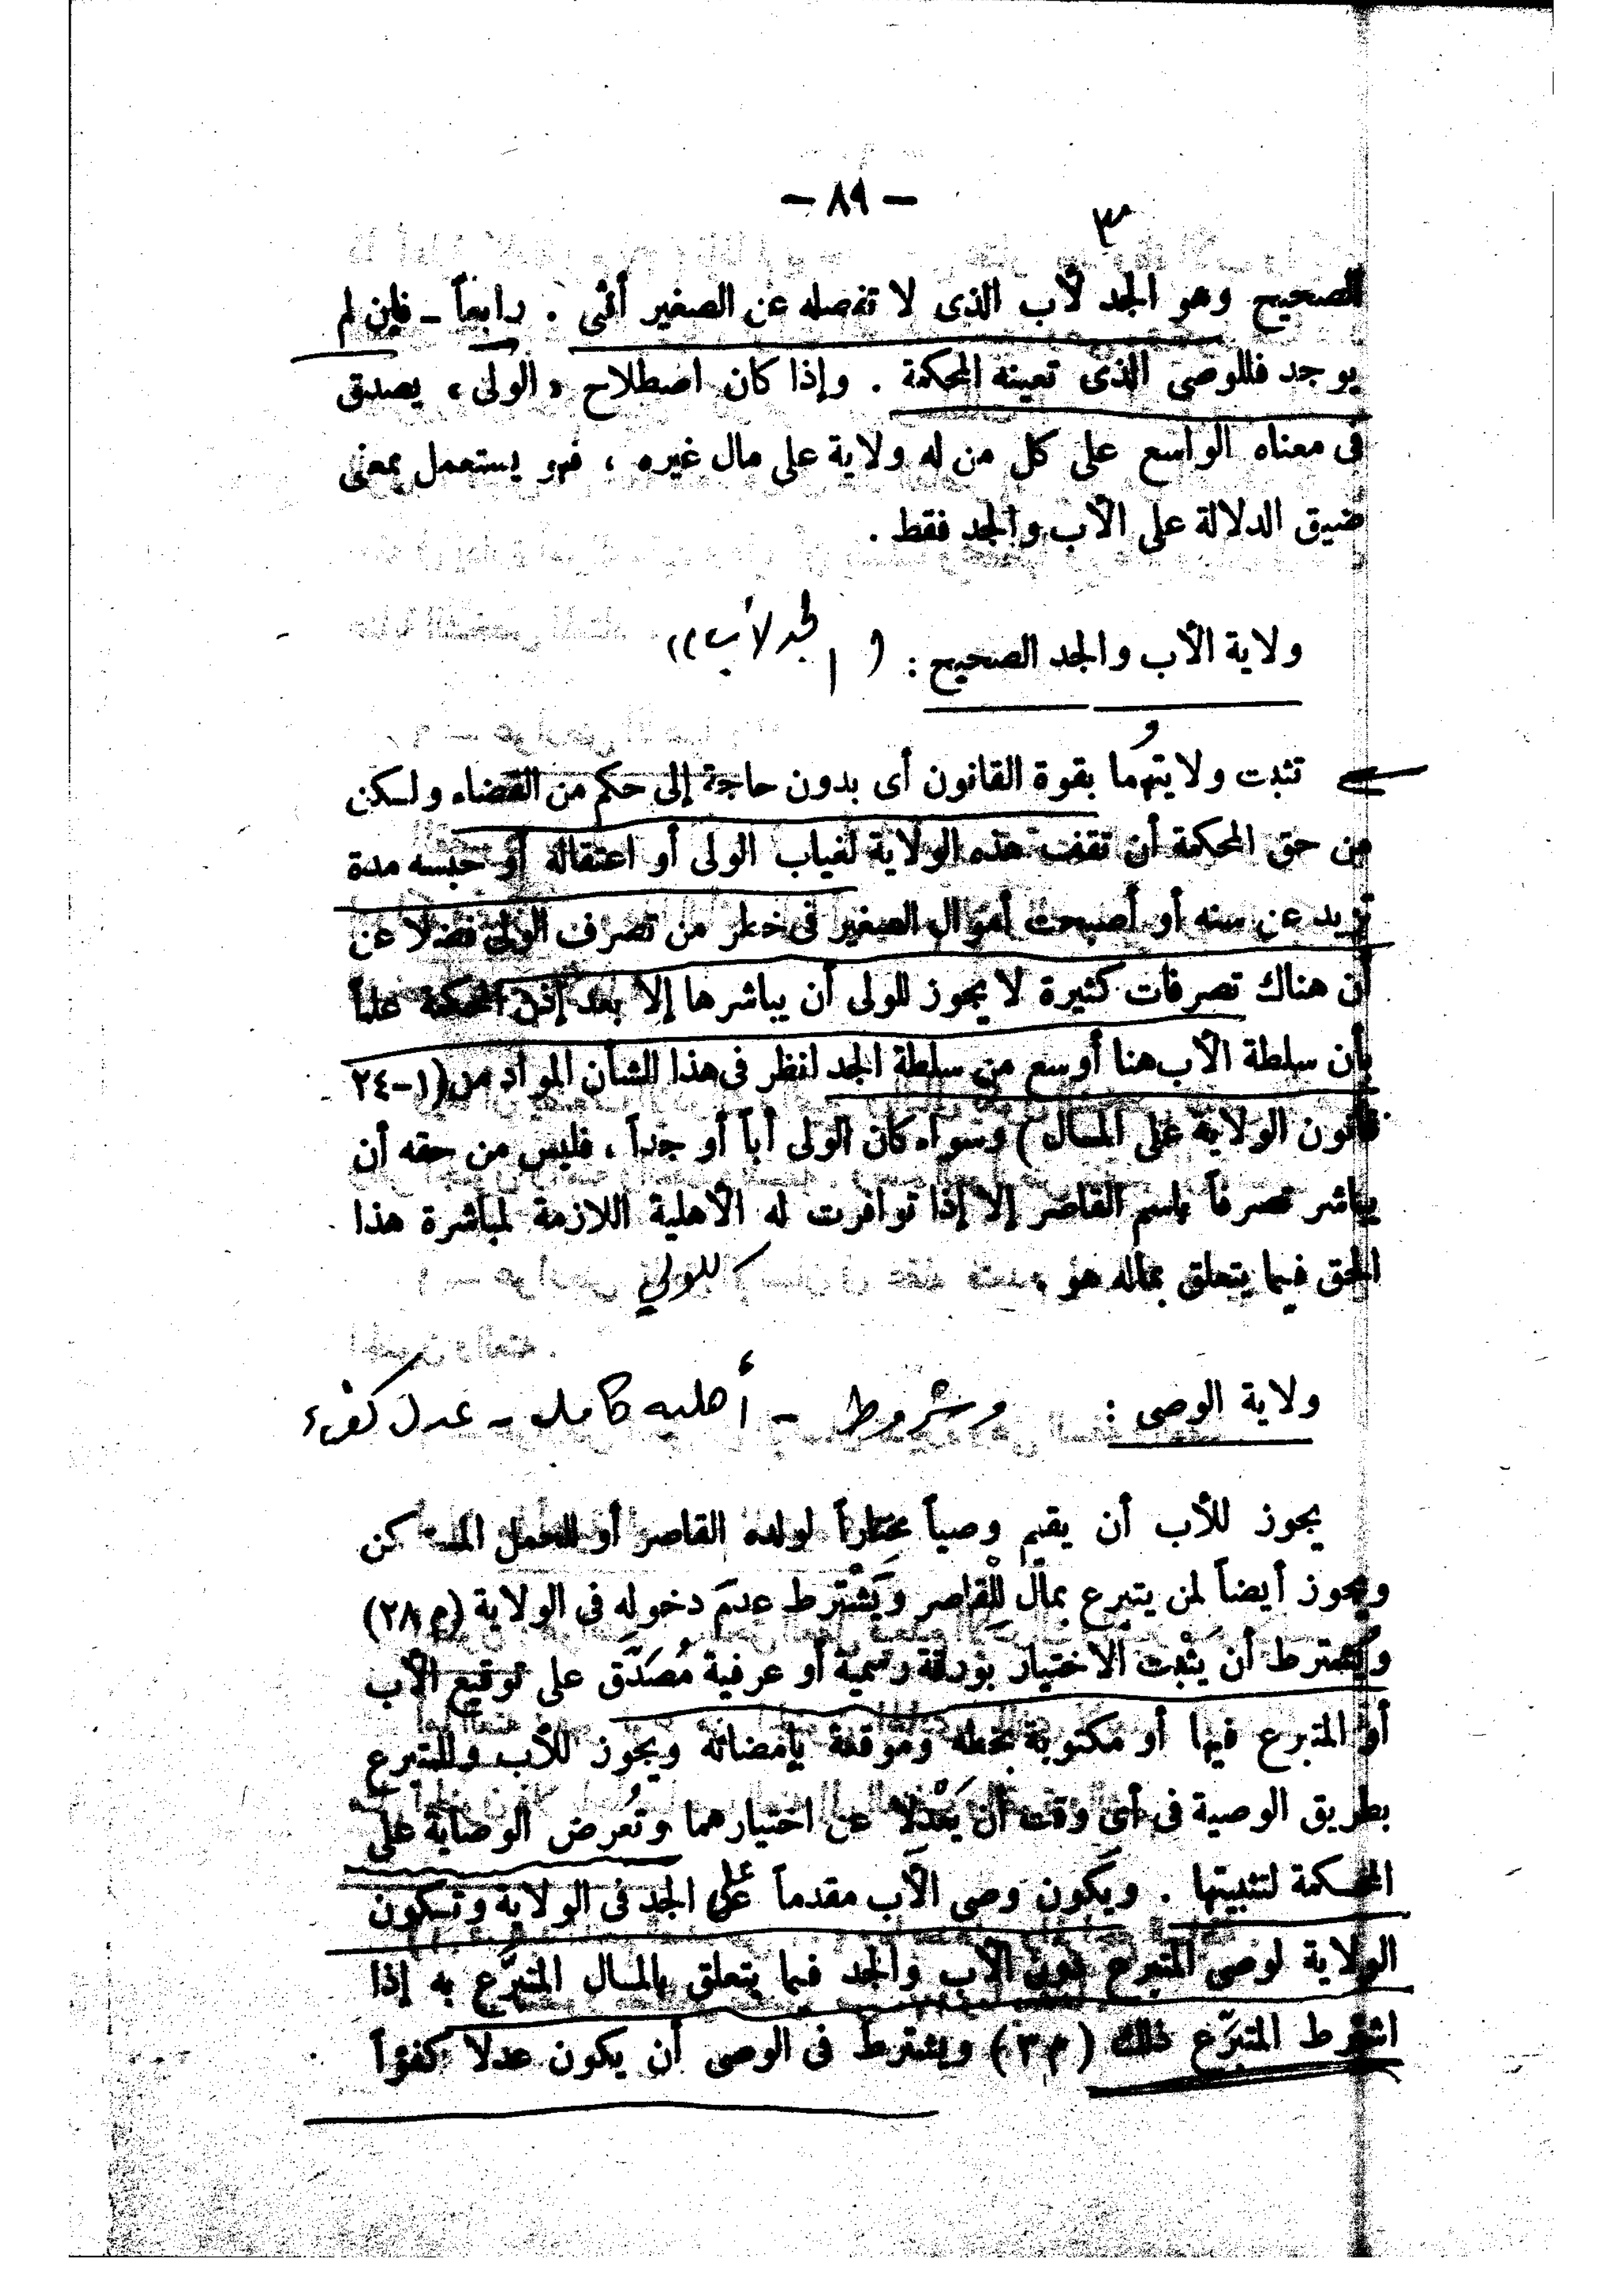 — ٨٩ —
٣
الصحيح وهو الجد لأب الذى لا تفصله عن الصغير أنثى . رابعاً – فإن لم
يوجد فللوصى الذى تعينه المحكمة . وإذا كان اصطلاح « الولى » يصدق
فى معناه الواسع على كل من له ولاية على مال غيره ، فهو يستعمل بمعنى
ضيق الدلالة على الأب والجد فقط .
ولاية الأب والجد الصحيح : ( الجد لأب ))
تثبت ولايتهما بقوة القانون أى بدون حاجة إلى حكم من القضاء ولكن
من حق المحكمة أن تقف هذه الولاية لغياب الولى أو اعتقاله أو حبسه مدة
تزيد عن سنه أو أصبحت أموال الصغير فى خطر من تصرف الولى فضلا عن
أن هناك تصرفات كثيرة لا يجوز للولى أن يباشرها إلا بعد إذن المحكمة علماً
بأن سلطة الأب هنا أوسع من سلطة الجد انظر فى هذا الشأن المواد من (١–٢٤
قانون الولاية على المال ) وسواء كان الولى أباً أو جداً ، فليس من حقه أن
يباشر تصرفاً باسم القاصر إلا إذا توافرت له الأهلية اللازمة لمباشرة هذا
الحق فيما يتعلق بماله هو . للولي
ولاية الوصى : وشروط – أهليه كامله – عدل كفء
يجوز للأب أن يقيم وصياً مختاراً لولده القاصر أو للحمل المستكن
ويجوز أيضاً لمن يتبرع بمال للقاصر ويشترط عدم دخوله فى الولاية (م ٢٨)
ويشترط أن يثبت الاختيار بورقة رسمية أو عرفية مُصَدَّق على توقيع الأب
أو المتبرع فيها أو مكتوبة بخطه وموقعة بإمضائه ويجوز للأب وللمتبرع
بطريق الوصية فى أى وقت أن يَعْدلا عن اختيارهما وتُعرض الوصاية على
المحكمة لتثبيتها . ويكون وصى الأب مقدماً على الجد فى الولاية وتكون
الولاية لوصى المتبرع دون الأب والجد فيما يتعلق بالمال المتبرَّع به إذا
اشترط المتبرّع ذلك ( م ٣ ) ويشترط فى الوصى أن يكون عدلا كفؤاً